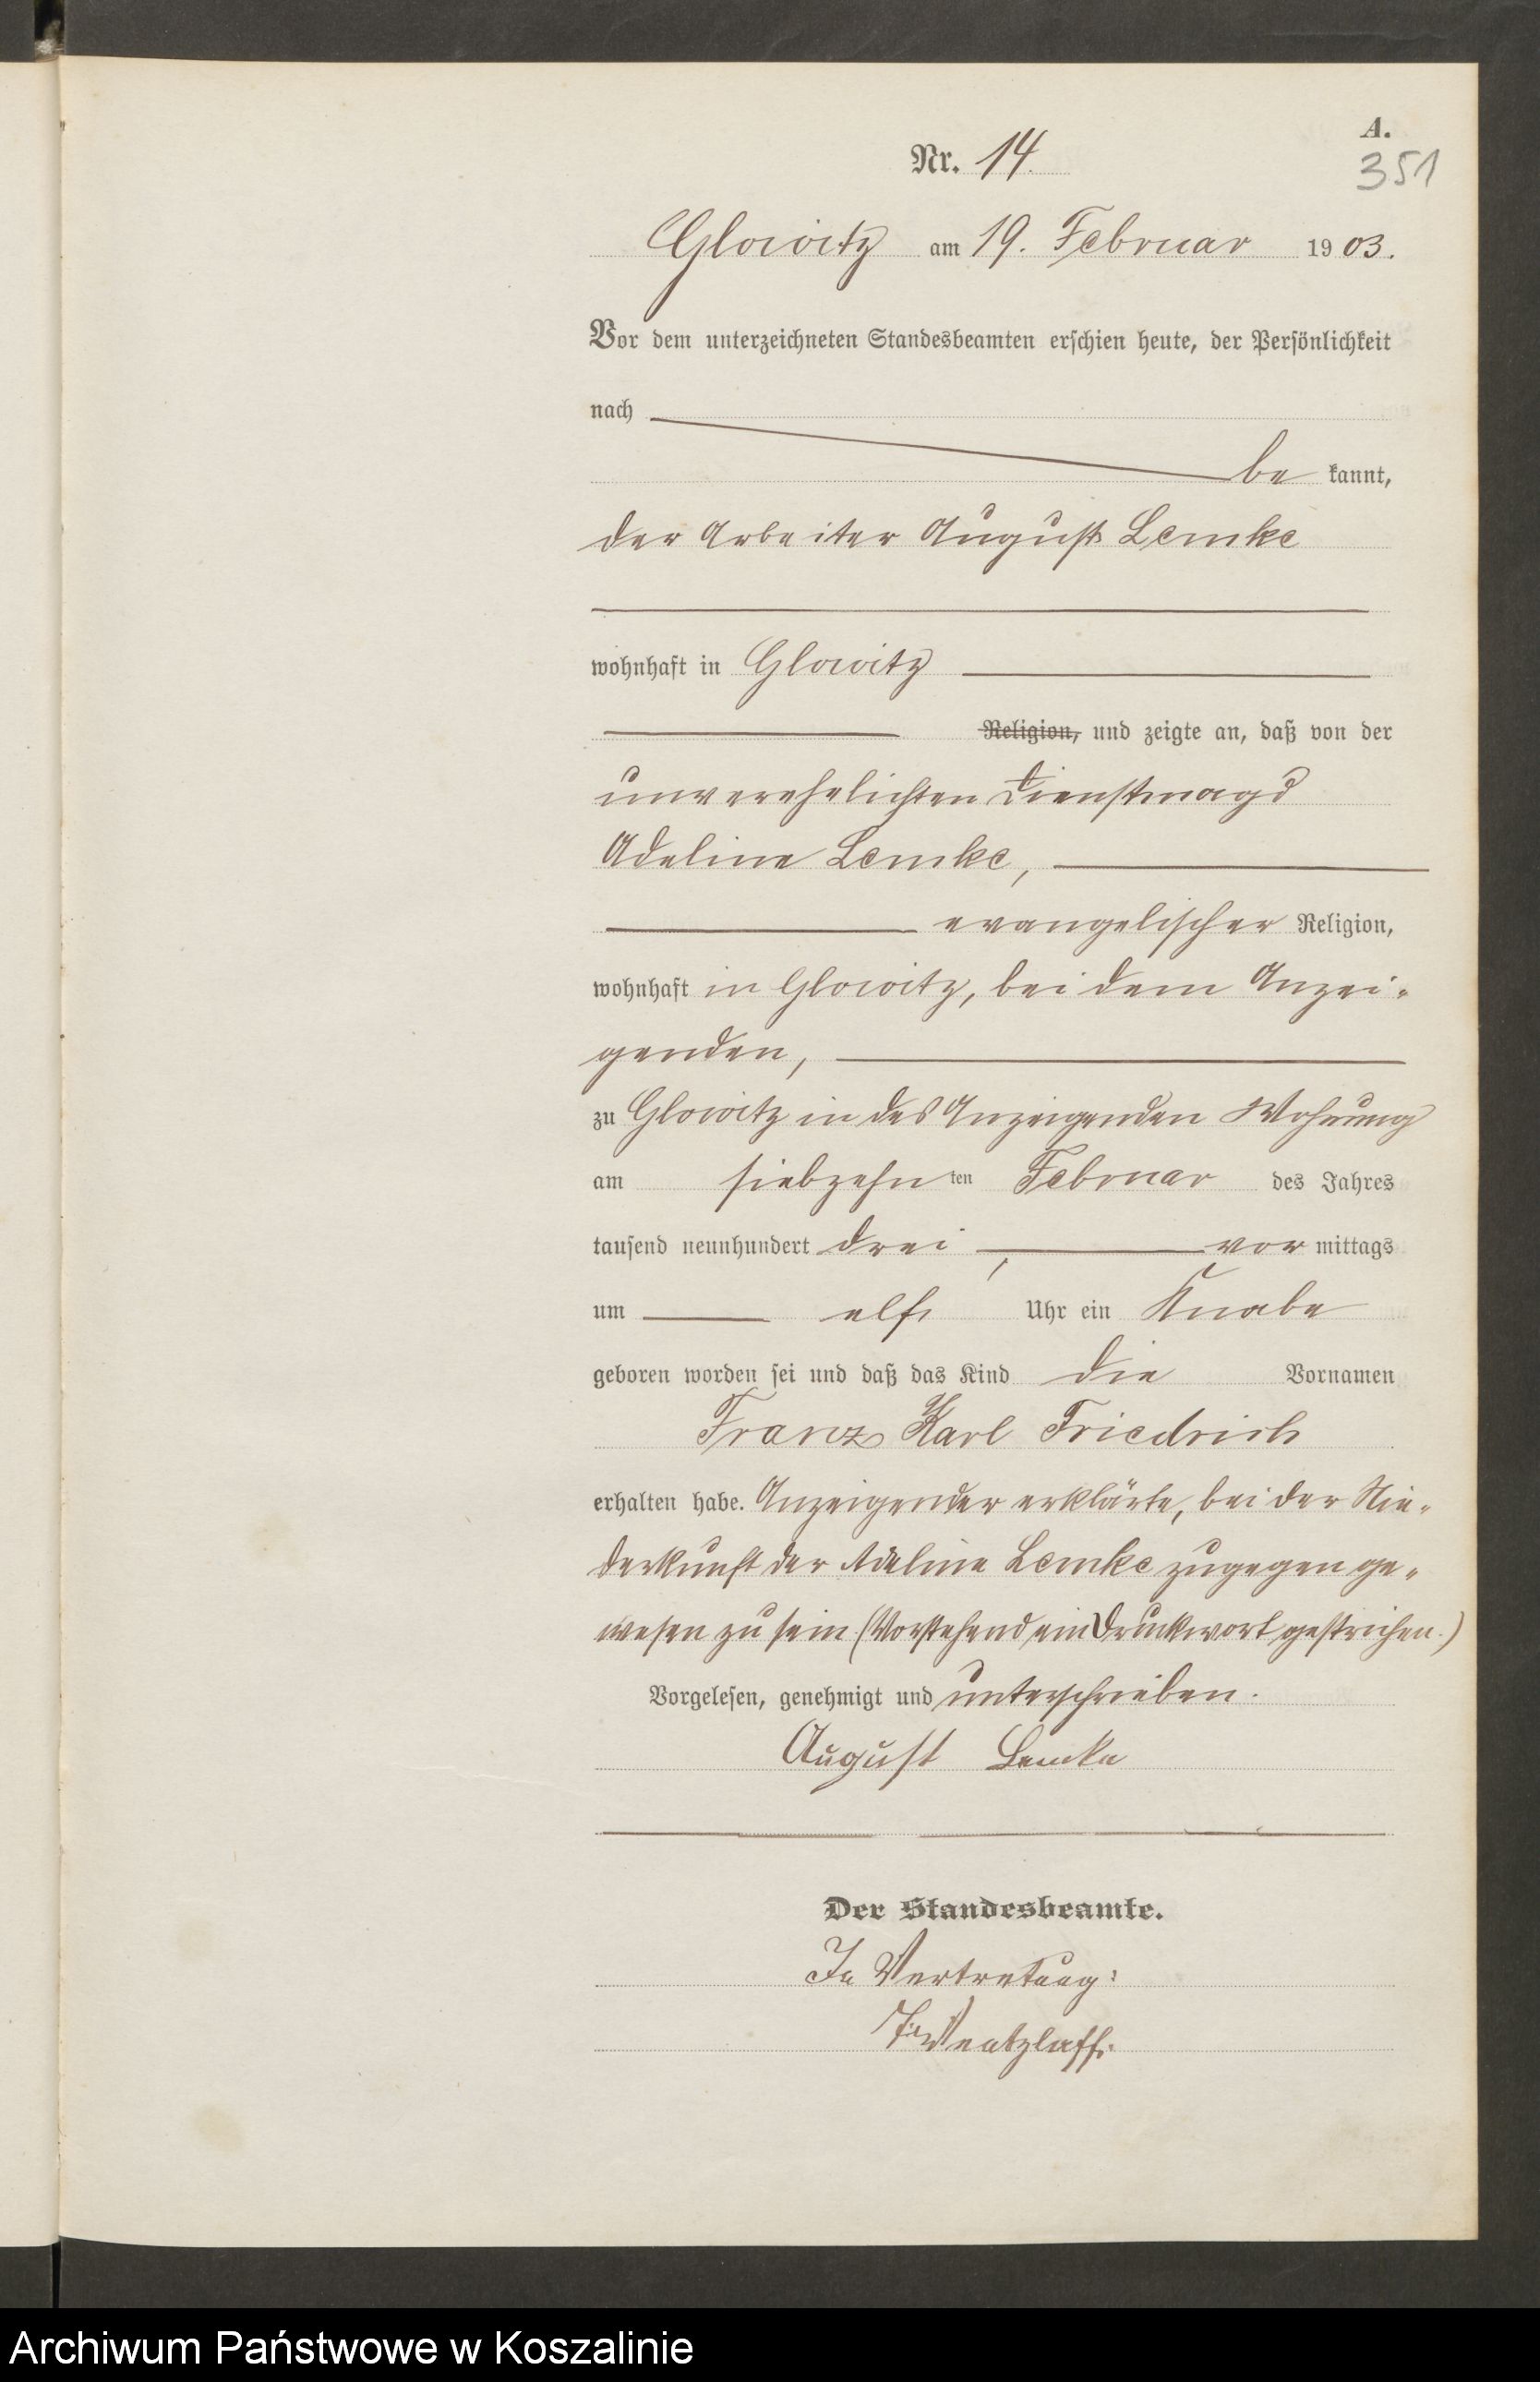 A.
Nr. 14.
351
Glowitz am 19. Februar 1903.
Vor dem unterzeichneten Standesbeamten erschien heute, der Persönlichkeit
nach
be kannt,
der Arbeiter August Lemke
wohnhaft in Glowitz
Religion, und zeigte an, daß von der
unverehelichten Dienstmagd
Adeline Lemke,
evangelischer Religion,
wohnhaft in Glowitz, bei dem Anzei-
genden,
zu Glowitz in des Anzeigenden Wohnung
am siebzehn ten Februar des Jahres
tausend neunhundert drei, vor mittags
um elf Uhr ein Knabe
geboren worden sei und daß das Kind die Vornamen
Franz Karl Friedrich
erhalten habe. Anzeigender erklärte, bei der Nie-
derkunft der Adeline Lemke zugegen ge-
wesen zu sein (Vorstehend ein Druckwort gestrichen.)
Vorgelesen, genehmigt und unterschrieben.
August Lemke
Der Standesbeamte.
In Vertretung:
Wentzlaff.
Archiwum Państwowe w Koszalinie